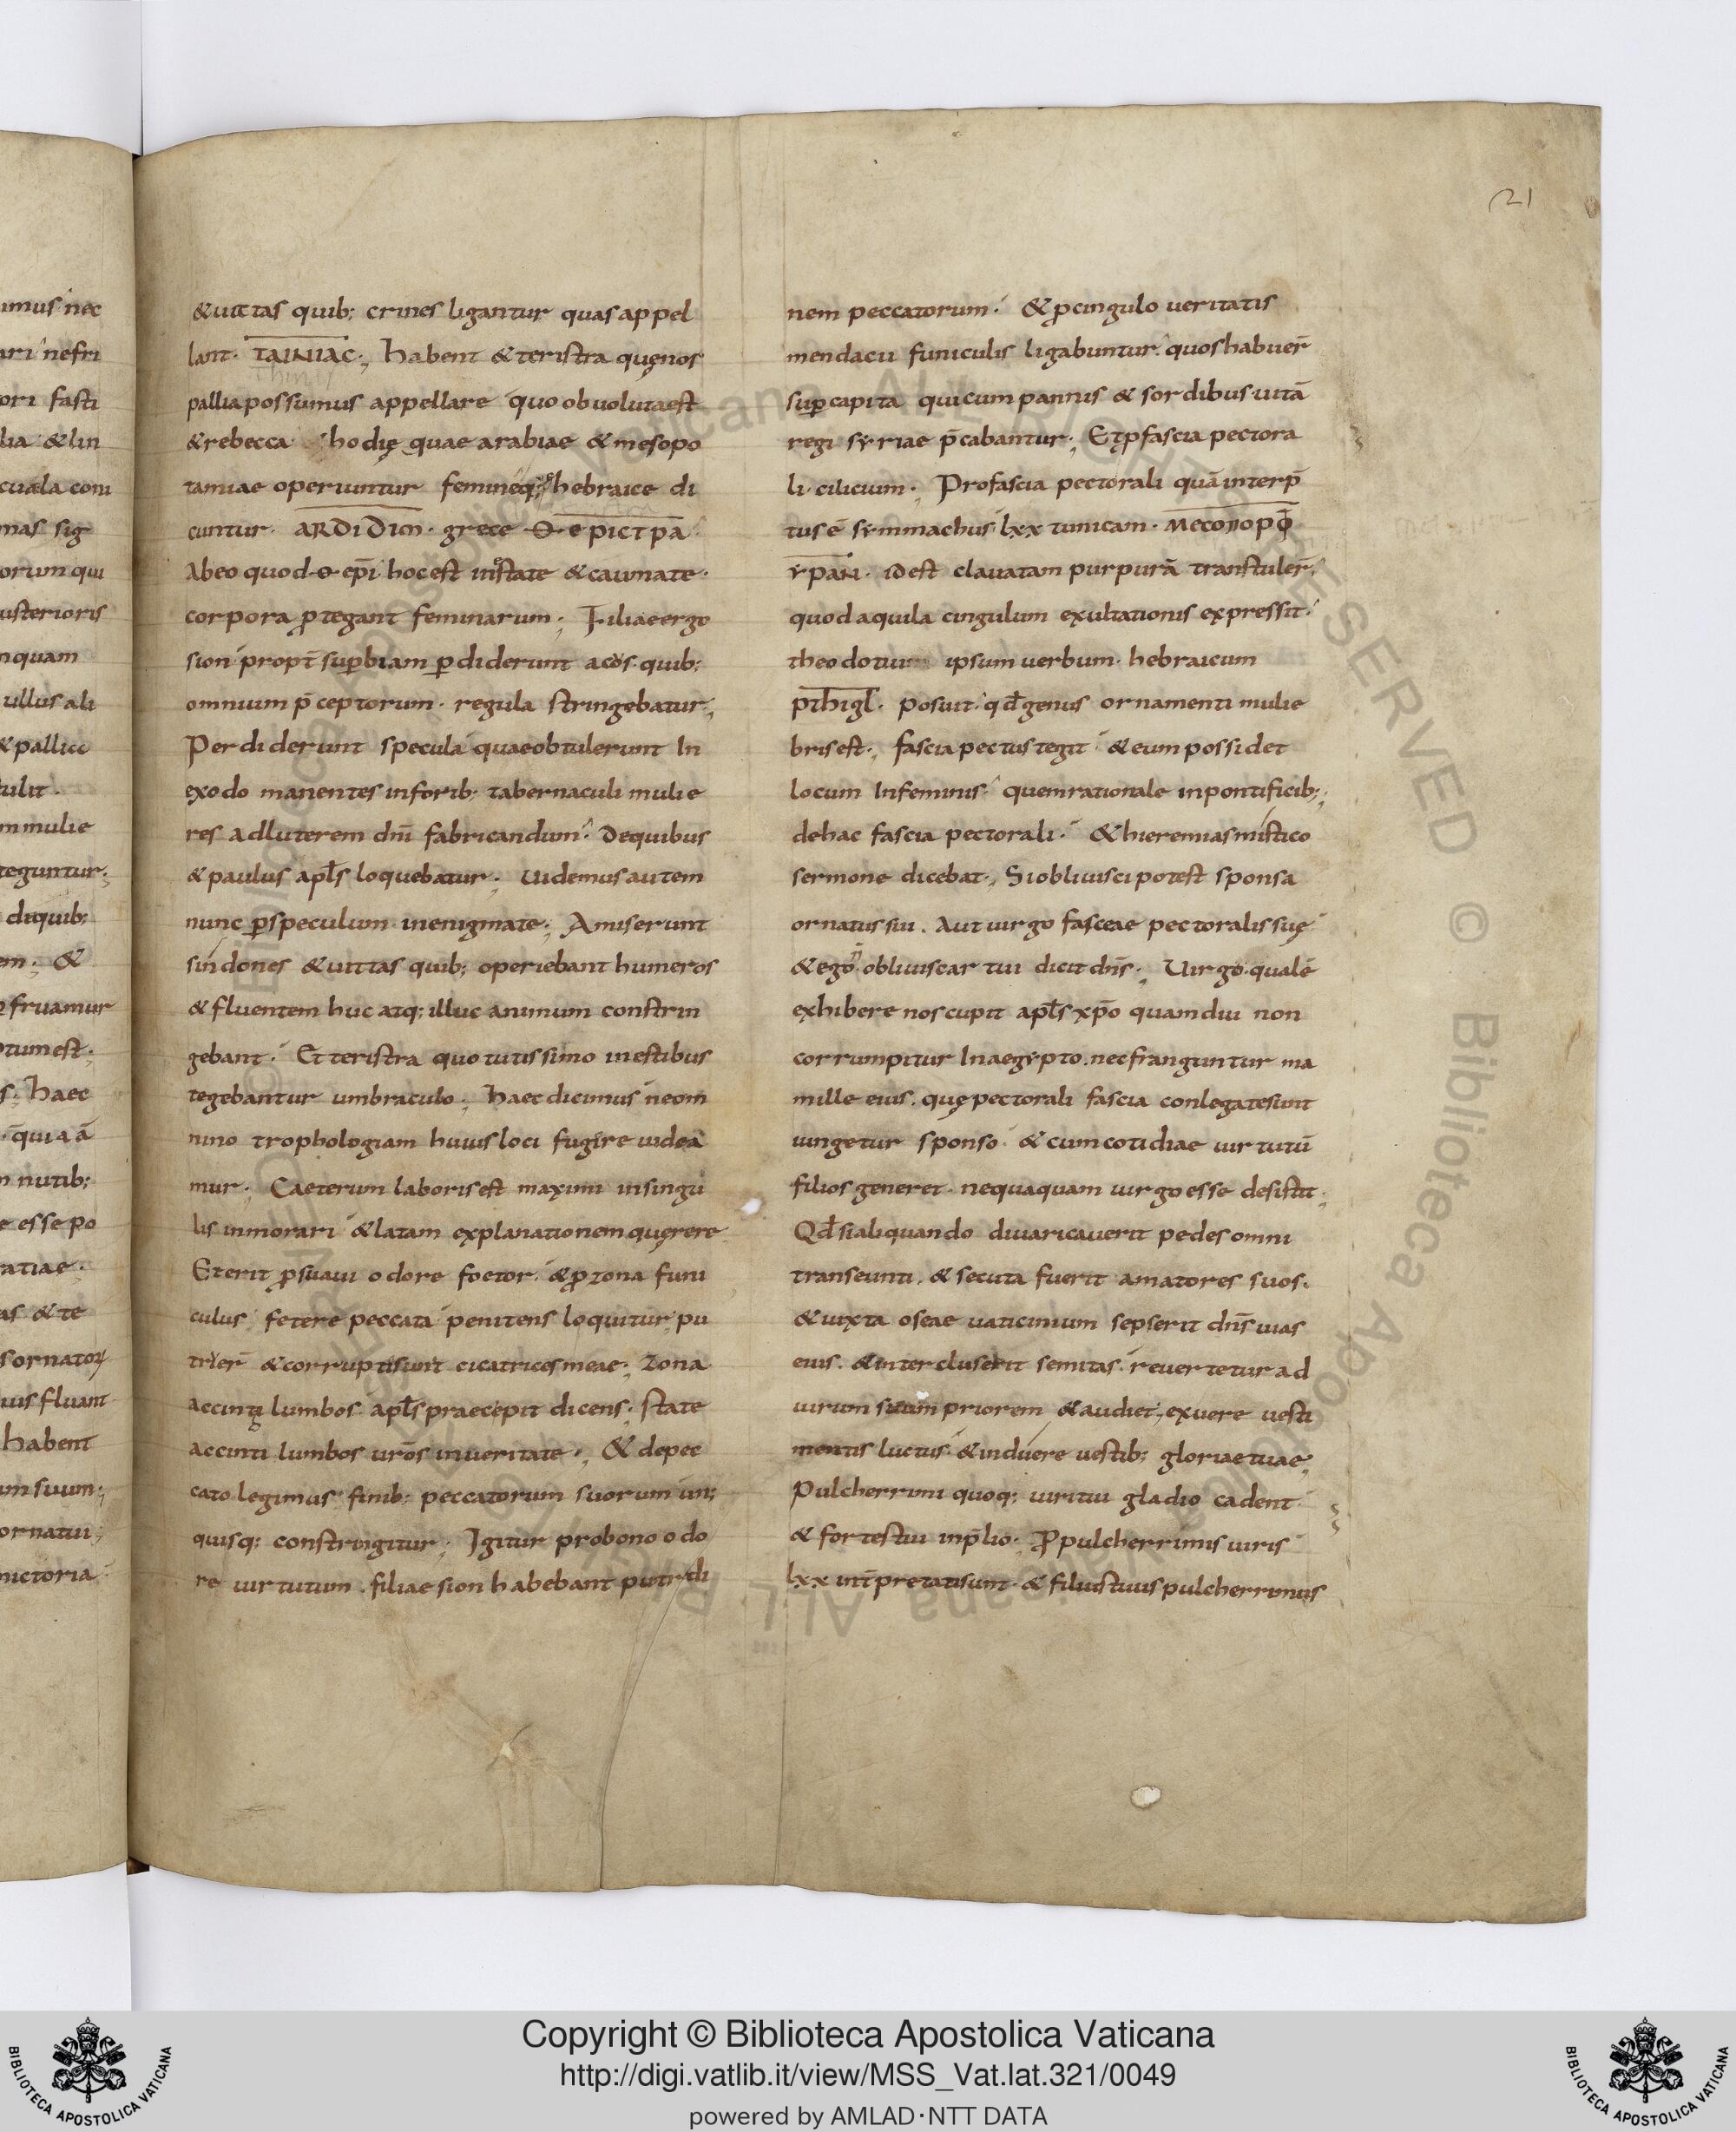 21
& uittas quib; crines ligantur quas appel
lant· TAINIAC·, habent & teristra quęnos
pallia possumus appellare quo obuoluta est
& rebecca· hodię quae arabiae & mesopo
tamiae operiuntur femineq; hebraice di
cuntur· ARDIDIM· grece Θ·EPICTPA·
Abeo quod Θ EP̄I hocest inęstate & caumate·
corpora ꝓtegant feminarum·, Filiae ergo
sion propt̄ suꝑbiam ꝑdiderunt acōs quib;
omnium p̄ceptorum· regula stringebatur·,
Perdiderunt specula quae obtulerunt In
exodo manentes inforib; tabernaculi mulie
res adluterem dn̄i fabricandum· Dequibus
& paulus apl̄s loquebatur·, uidemus autem
nunc ꝑ speculum inenigmate·, Amiserunt
sindones & uittas quib; operiebant humeros
& fluentem huc atq; illuc animum constrin
gebant· Et teristra quo tutissimo inestibus
tegebantur umbraculo·, haec dicimus neom
nino trophologiam huius loci fugire uidea
mur· Caeterum laboris est maximi insingu
lis inmorari & latam explanationem quęrere
Et erit ꝓ suaui odore foetor· & ꝓ zona funi
culus· fetere peccata penitens loquitur· pu
truer̄ & corrupti sunt cicatrices meae·, Zona
accingi lumbos apl̄s praecepit dicens· state
accinti lumbos ur̄os in ueritate·, & depec
cato legimus finib; peccatorum suorum un;
quisq; constringitur·, Igitur probono odo
re uirtutum· filiae sion habebant putridi
nem peccatorum· & ꝓ cingulo ueritatis
mendacii funiculis ligabuntur· quos habuer̄
suꝑ capita qui cum pannis & sordibus uitā
regi syriae p̄cabantur·, Et ꝓ fascia pectora
li· cilicium·, Pro fascia pectorali quā interp̄
tus ē symmachus lxx tunicam· MECONOPΦ
YPAN· id est clauatam purpurā transtuler̄
quod aquila cingulum exultationis expressit·
theodotium ipsum uerbum· hebraicum
pthigl· posuit· qd̄ genus ornamenti mulie
bris est·, fascia pectus tegit & eum possidet
locum Infeminis· quem rationale inpontificib;,
dehac fascia pectorali· & hieremias mistico
sermone dicebat·, Si obliuisci potest sponsa
ornatus sui· Aut uirgo fasceae pectoralis suę
& ego n̄ obliuiscar tui dicit dn̄s·, Uirgo· qualē
exhibere nos cupit apl̄s xp̄o quamdiu non
corrumpitur In aegypto· nec franguntur ma
mille eius· quę pectorali fascia conlegate sunt
iungetur sponso· & cum cotidiae uirtutū
filios generet· nequaquam uirgo esse desistit·,
Qd̄ si aliquando diuaricauerit pedes omni
transeunti· & secuta fuerit amatores suos·
& iuxta oseae uaticinium sepserit dn̄s uias
eius· & intercluserit semitas· reuertetur ad
uirum suum priorem & audiet·, exuere uesti
mentis luctus· & induere uestib; gloriae tuae·,
Pulcherrimi quoq; uiri tui gladio cadent·
& fortes tui inp̄lio·, Ꝓ pulcherrimis uiris
lxx int̄pretati sunt· & filius tuus pulcherrimus
imus nec
ari nefri
ori fasti
lia & lin
nas sig
orum qui
usterioris
nquam
ullus ali
& pallii
tulit·
m mulie
teguntur·,
diquib;
em·, &
fruamur
tum est·,
s· haec
· quia ā
n nutib;
e esse po
ratiae·
as & te
s ornatoꝝ
uis fluant
habent
um suum·,
ornatui·,
nictoria
Copyright © Biblioteca Apostolica Vaticana
http://digi.vatlib.it/view/MSS_Vat.lat.321/0049
powered by AMLAD·NTT DATA
BIBLIOTECA APOSTOLICA VATICANA
BIBLIOTECA APOSTOLICA VATICANA